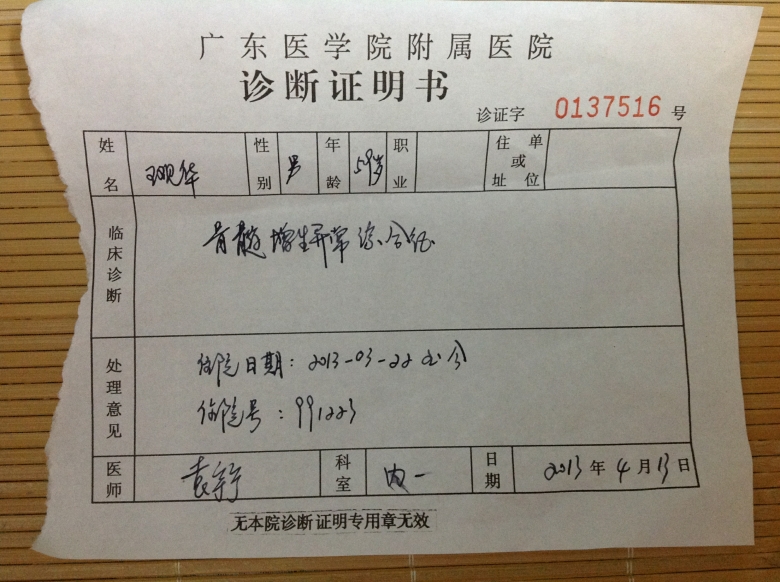 广东医学院附属医院
诊断证明书
诊证字 0137516 号
姓名 王观华 性别 男 年龄 59岁 职业 住址或单位
临床诊断 骨髓增生异常综合征
处理意见 住院日期：2013-03-22至今
住院号：991223
医师 袁 科室 内一 日期 2013年4月13日
无本院诊断证明专用章无效